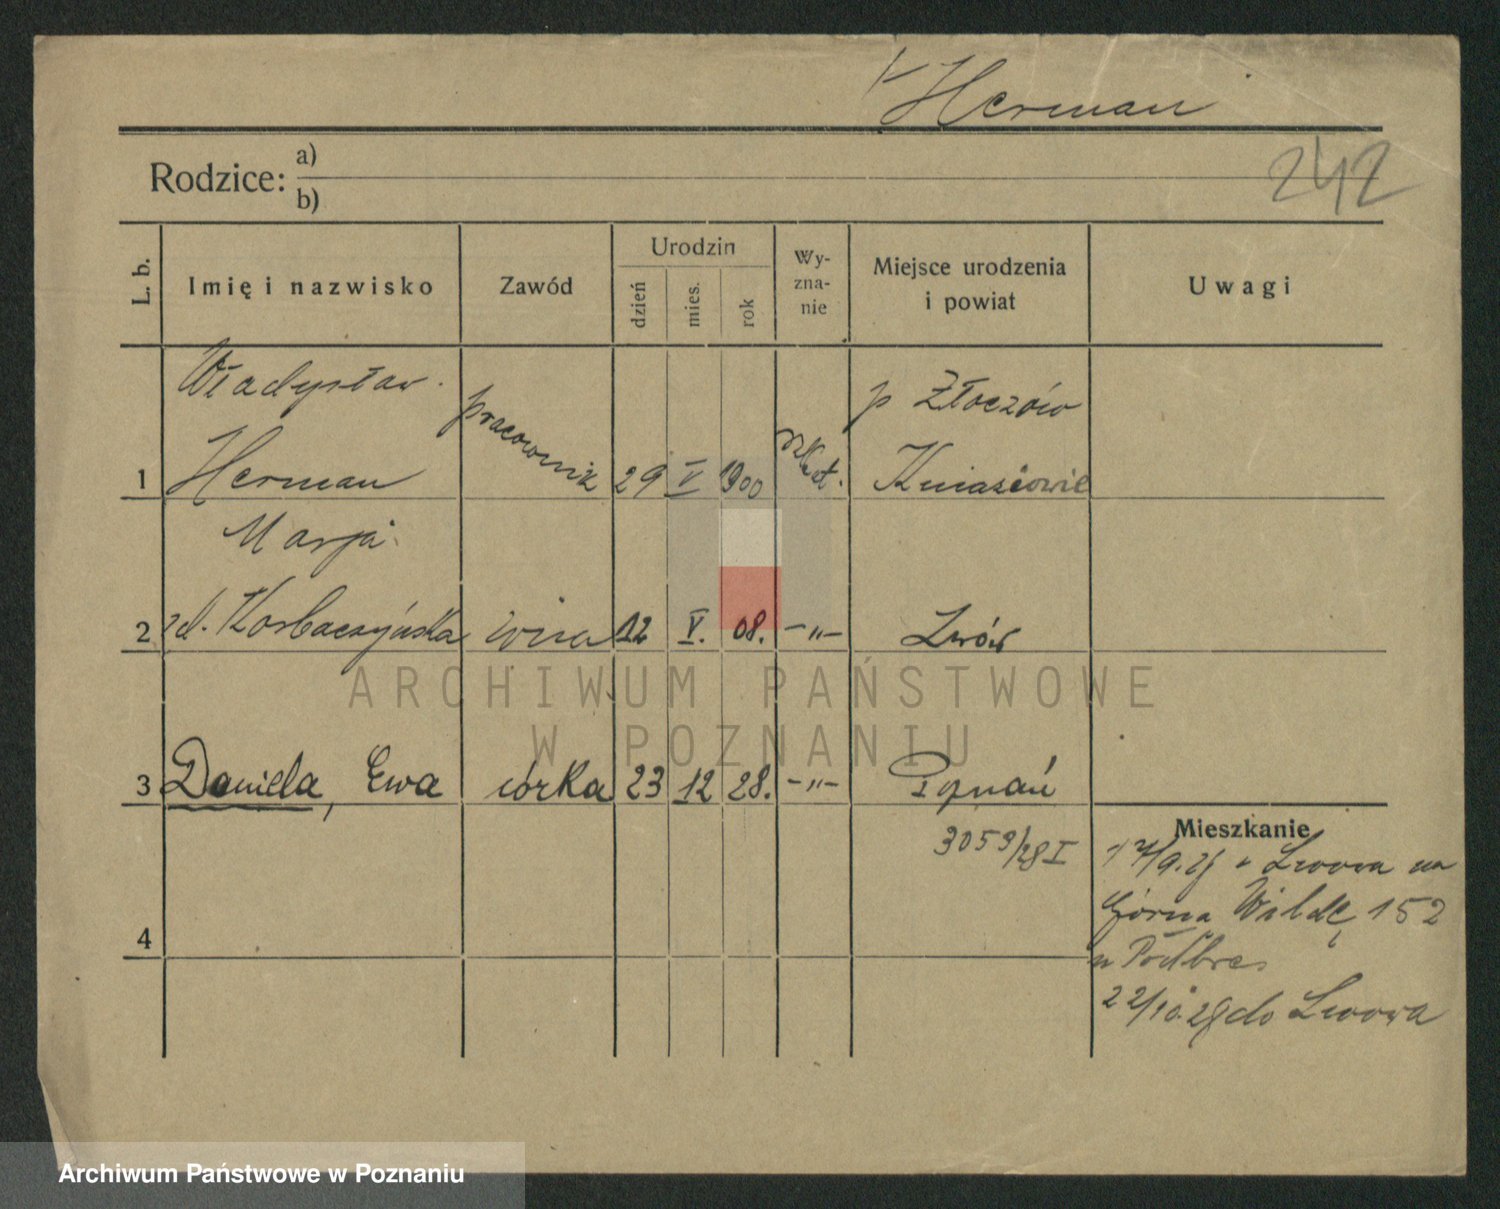 Herman
242
Rodzice: a)
b)
L. b.
Imię i nazwisko
Zawód
Urodzin
dzień
mies.
rok
Wy-
zna-
nie
Miejsce urodzenia
i powiat
Uwagi
Władysław
Herman
1
pracownik
29 V 1900
rzkat.
p Złoczów
Kniaziowie
Marja
2
zd. Korbaczyńska
żona
12 V. 08. -„-
Lwów
3 Daniela, Ewa córka 23 12 28. -„- Poznań
3059/28 I
Mieszkanie
Lwowa na
Górna Wildę 152
u
22/10.29 do Lwowa
4
ARCHIWUM PAŃSTWOWE
W POZNANIU
Archiwum Państwowe w Poznaniu